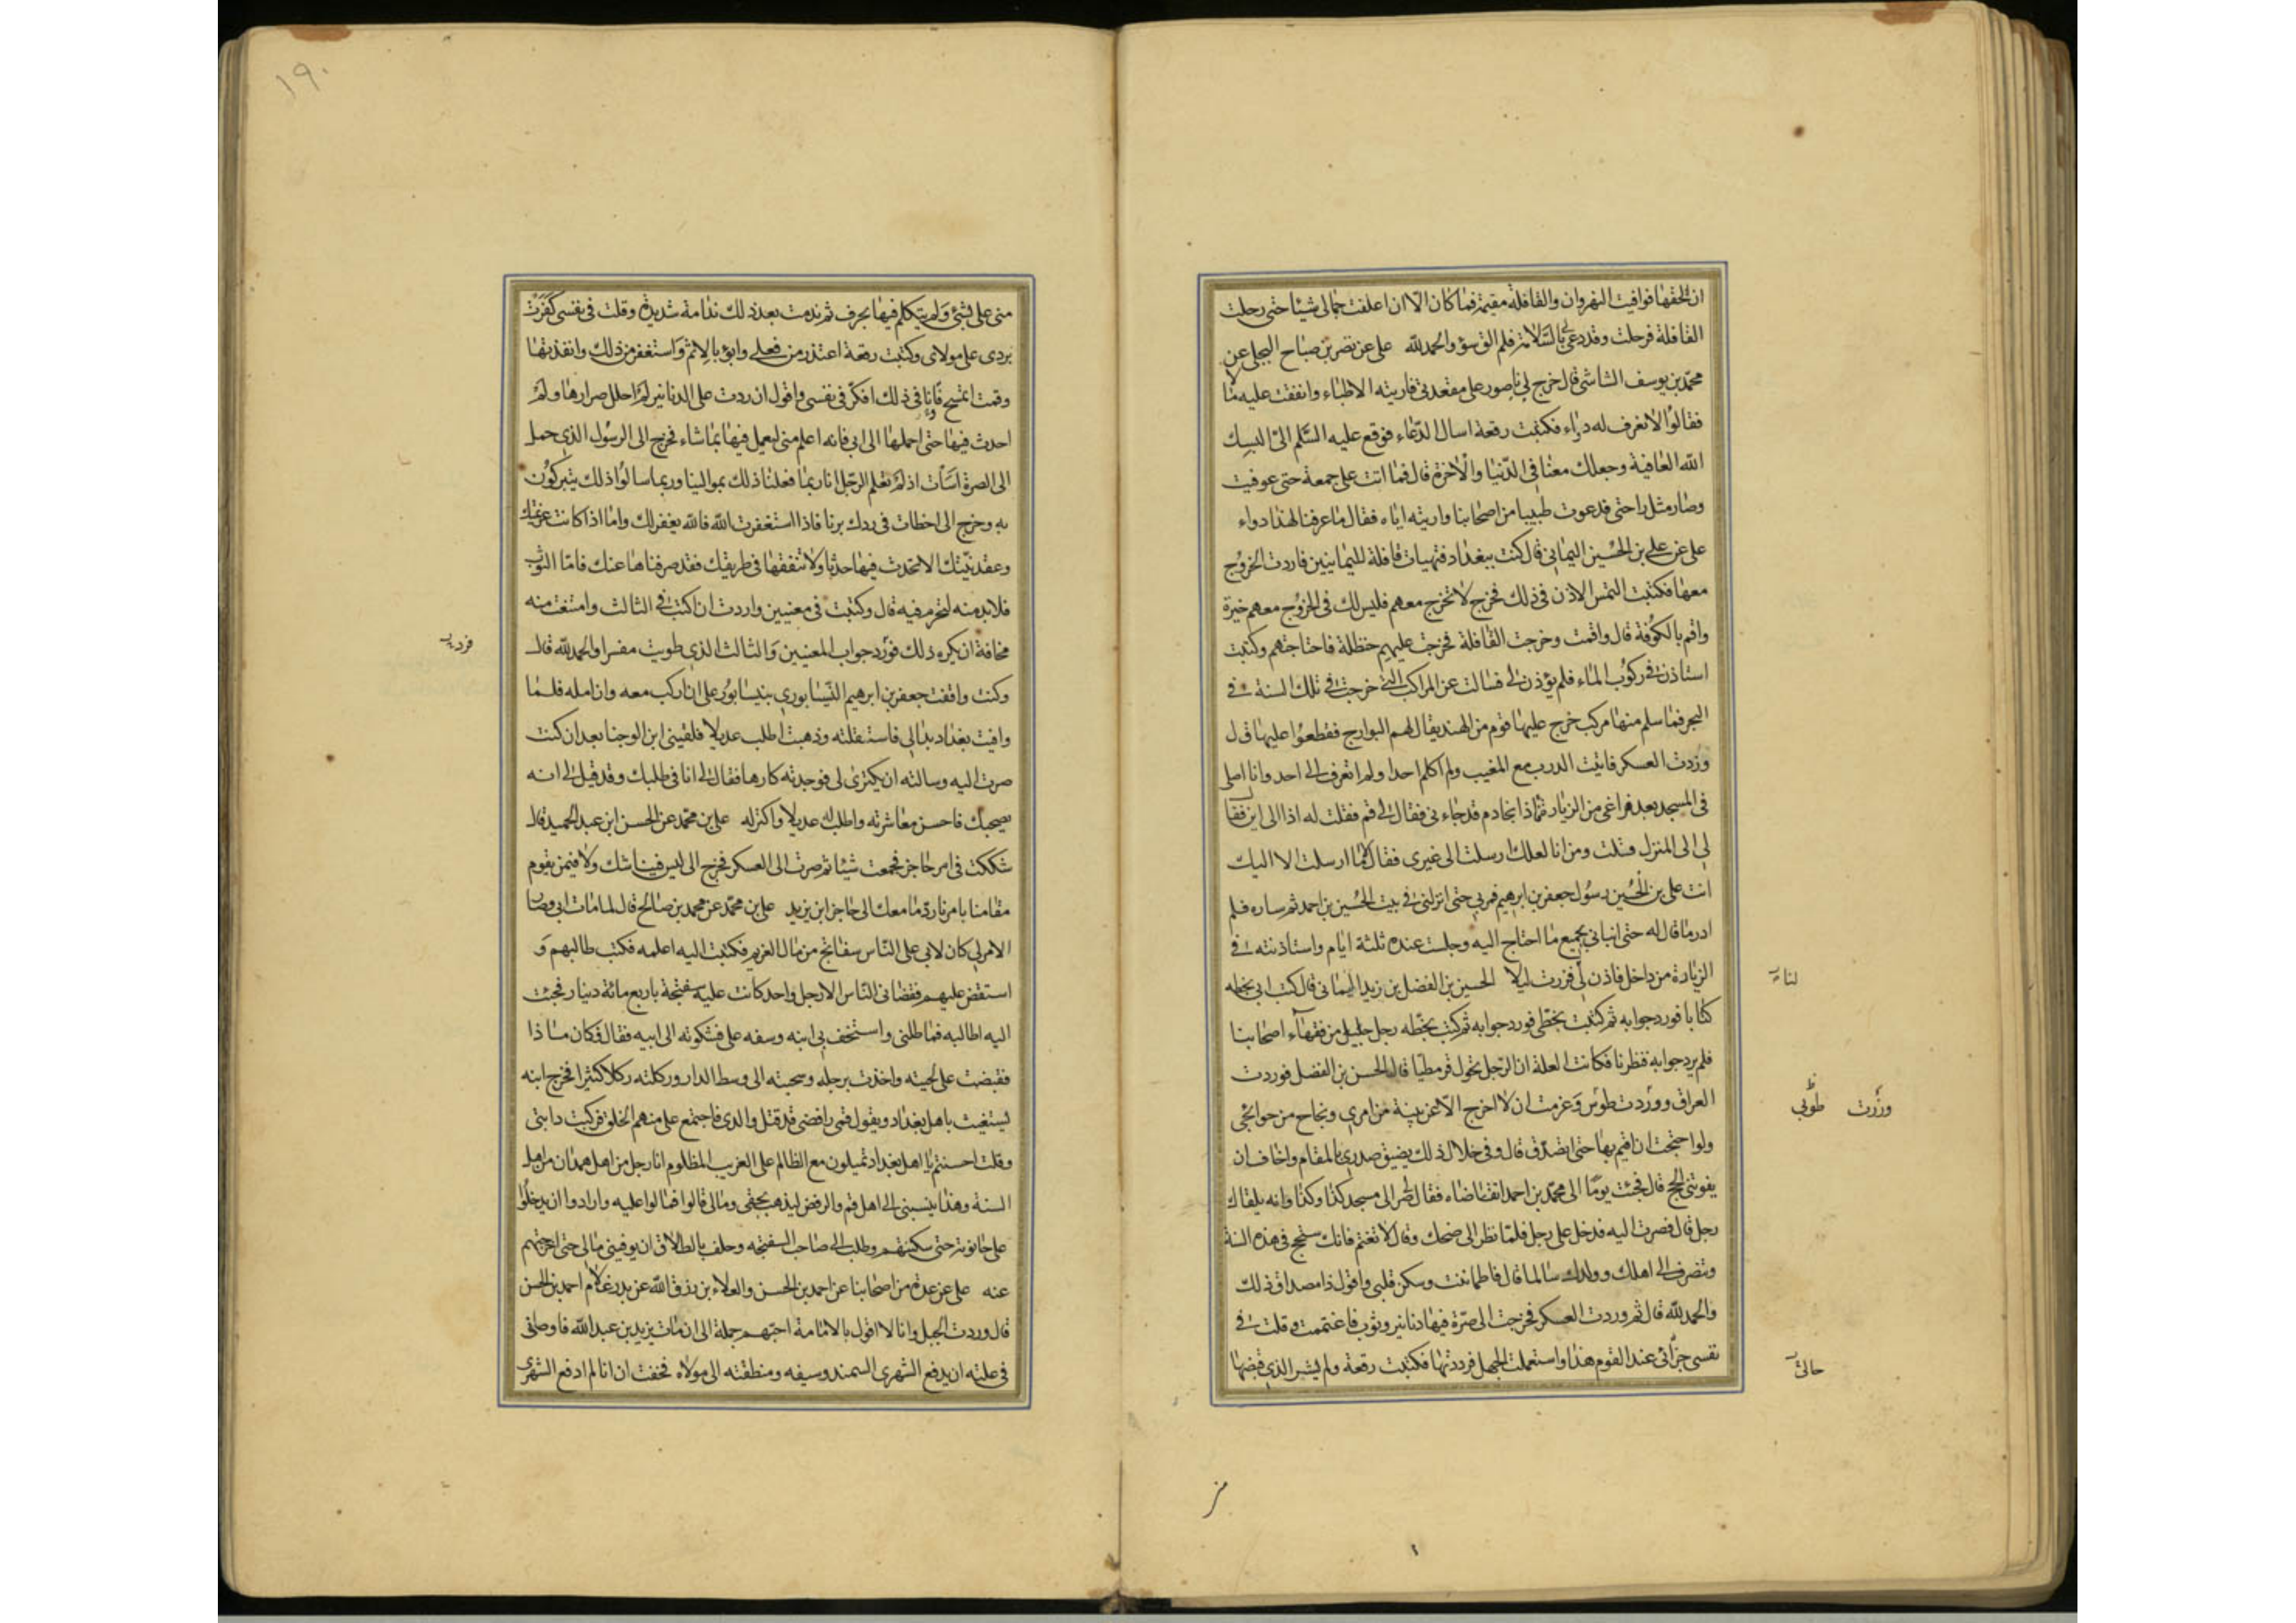 ان الحقها فوافيت النهروان والقافلة مقيمة فما كان الا ان اعلفت جمالي شيئا حتى رحلت
القافلة فرحلت وقد دعى لي بالسلامة فلم الق سوؤ والحمدلله علي عن نصر بن صباح البجلي عن
محمد بن يوسف الشاشي قال خرج بي ناصور على مقعدتي فاريته الاطباء وانفقت عليه مالا
فقالوا لا نعرف له دواء فكتبت رقعة اسال الدعاء فوقع عليه السلم الى البسك
الله العافية وجعلك معنا في الدنيا والاخرة قال فما اتت على جمعة حتى عوفيت
وصار مثل راحتي فدعوت طبيبا من اصحابنا واريته اياه فقال ما عرفنا لهذا دواء
علي عن علي بن الحسين اليماني قال كنت ببغداد فتهيات قافلة لليمانيين فاردت الخروج
معها فكتبت التمس الاذن في ذلك فخرج لا تخرج معهم فليس لك في الخروج معهم خيرة
واقم بالكوفة قال واقمت وخرجت القافلة فخرجت عليهم حنظلة فاجتاحتهم وكتبت
استاذن في ركوب الماء فلم يؤذن لي فسالت عن المراكب التي خرجت في تلك السنة في
البحر فما سلم منها مركب خرج عليها قوم من الهند يقال لهم البوارج فقطعوا عليها قال
وزدت العسكر فاتيت الدرب مع المغيب ولم اكلم احدا ولم اتعرف الى احد وانا اصلي
في المسجد بعد فراغي من الزيارة فاذا بخادم قد جاءني فقال لي قم فقلت له اذا الى اين فقال
لي الى المنزل فقلت ومن انا لعلك ارسلت الى غيري فقال لا ما ارسلت الا اليك
انت علي بن الحسين رسول جعفر بن ابرهيم فمر بي حتى انزلني في بيت الحسين بن احمد ثم ساره فلم
ادر ما قال له حتى اتاني بجميع ما احتاج اليه وجلست عنده ثلثة ايام واستاذنته في
الزيارة من داخل فاذن لي فزرت ليلا الحسين بن الفضل بن زيد اليماني قال كتب ابي بخطه
كتابا فورد جوابه ثم كتبت بخطي فورد جوابه ثم كتب بخطه رجل جليل من فقهاء اصحابنا
فلم يرد جوابه فنظرنا فكانت العلة ان الرجل تحول قرمطيا قال الحسن بن الفضل فوردت
العراق ووردت طوس وعزمت ان لا اخرج الا عن بينة من امري ونجاح من حوائجي
ولو احتجت ان اقيم بها حتى اتصدق قال وفي خلال ذلك يضيق صدري بالمقام واخاف ان
يفوتني الحج قال فجئت يوما الى محمد بن احمد اتقاضاه فقال لي صر الى مسجد كذا وكذا وانه يلقاك
رجل قال فصرت اليه فدخل علي رجل فلما نظر الي ضحك وقال لا تغتم فانك ستحج في هذه السنة
وتنصرف الى اهلك وولدك سالما قال فاطماننت وسكن قلبي واقول ذا مصداق ذلك
والحمدلله قال ثم وردت العسكر فخرجت الي صرة فيها دنانير وثوب فاغتممت وقلت في
نفسي جزائي عند القوم هذا واستعملت الجهل فرددتها فكتبت رقعة ولم يشر الذي قبضها
وزرت طوبى
حالتي
١٩٠
مني علي بشيء ولم يتكلم فيها بحرف ثم ندمت بعد ذلك ندامة شديدة وقلت في نفسي كفرت
بردي على مولاي وكتبت رقعة اعتذر من فعلي وابؤ بالاثم واستغفر من ذلك وانفذتها
وقمت اتمسح فانا في ذلك افكر في نفسي واقول ان ردت علي الدنانير لم احلل صرارها ولم
احدث فيها حتى احملها الى ابي فانه اعلم مني ليعمل فيها بما شاء فخرج الى الرسول الذي حمل
الي الصرة اسأت اذ لم تعلم الرجل انا ربما فعلنا ذلك بموالينا وربما سالوا ذلك يتبركون
به وخرج الي اخطات في ردك برنا فاذا استغفرت الله فالله يغفر لك واما اذا كانت عزيمتك
وعقد نيتك الا تحدث فيها حدثا ولا تنفقها في طريقك فقد صرفناها عنك فاما الثوب
فلا بد منه لتحرم فيه قال وكتبت في معنيين واردت ان اكتب في الثالث وامتنعت منه
مخافة ان يكره ذلك فورد جواب المعنيين والثالث الذي طويت مفسرا والحمدلله قال
وكنت وافقت جعفر بن ابرهيم النيسابوري بنيسابور على ان اركب معه وازامله فلما
وافيت بغداد بدا لي فاستقلته وذهبت اطلب عديلا فلقيني ابن الوجنا بعد ان كنت
صرت اليه وسالته ان يكتري لي فوجدته كارها فقال لي انا في طلبك وقد قيل لي انه
يصحبك فاحسن معاشرته واطلب له عديلا واكتر له علي بن محمد عن الحسن ابن عبد الحميد قال
شككت في امر حاجز فجمعت شيئا ثم صرت الى العسكر فخرج الي ليس فينا شك ولا فيمن يقوم
مقامنا بامرنا رد ما معك الى حاجز ابن يزيد علي بن محمد عن محمد بن صالح قال لما مات ابي وصار
الامر لي كان لابي على الناس سفاتج من مال الغريم فكتبت اليه اعلمه فكتب طالبهم و
استقض عليهم فقضاني الناس الا رجل واحد كانت عليه سفتجة باربع مائة دينار فجئت
اليه اطالبه فماطلني واستخف بي ابنه وسفه علي فشكوته الى ابيه فقال وكان ماذا
فقبضت على لحيته واخذت برجله وسحبته الى وسط الدار وركلته ركلا كثيرا فخرج ابنه
يستغيث باهل بغداد ويقول قمي رافضي قد قتل والدي فاجتمع علي منهم الخلق فركبت دابتي
وقلت احسنتم يا اهل بغداد تميلون مع الظالم على الغريب المظلوم انا رجل من اهل همدان من اهل
السنة وهذا ينسبني الى اهل قم والرفض ليذهب بحقي ومالي قالوا فمالوا عليه وارادوا ان يدخلوا
على حانوته حتى سكنتهم وطلب الي صاحب السفتجه وحلف بالطلاق ان يوفيني مالي حتى اخرجتهم
عنه علي عن عدة من اصحابنا عن احمد بن الحسن والعلاء بن رزق الله عن بدر غلام احمد بن الحسن
قال وردت الجبل وانا لا اقول بالامامة احبهم جملة الى ان مات يزيد بن عبد الله فاوصاني
في علته ان يدفع الشهري السمند وسيفه ومنطقته الى مولاه فخفت ان انا لم ادفع الشهري